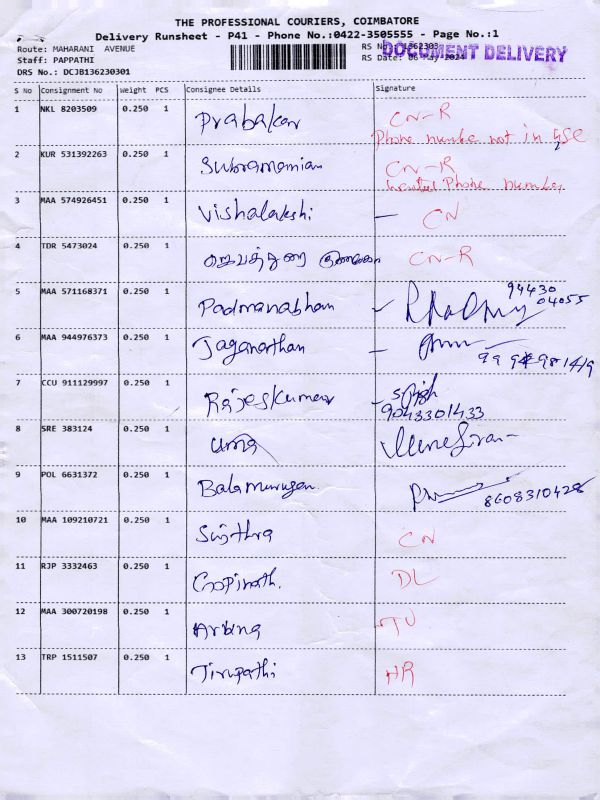 THE PROFESSIONAL COURIERS, COIMBATORE
Delivery Runsheet - P41 - Phone No.:0422-3505555 - Page No.:1
Route: MAHARANI AVENUE
RS No.: 1362303
DOCUMENT DELIVERY
Staff: PAPPATHI
RS Date: 06-May-2024
DRS No.: DCJB136230301
S No Consignment No Weight PCS Consignee Details Signature
1 NKL 8203509 0.250 1 Prabakar CN-R
Phone number not in
2 KUR 531392263 0.250 1 Subramanian CN-R
Phone number
3 MAA 574926451 0.250 1 Vishalakshi - CN
4 TDR 5473024 0.250 1 CN-R
5 MAA 571168371 0.250 1 Padmanabham 94430
04055
6 MAA 944976373 0.250 1 Jaganathan -
7 CCU 911129997 0.250 1 Rajeskumar
9043301433
8 SRE 383124 0.250 1 Uma
9 POL 6631372 0.250 1 Balamurugan 8608310428
10 MAA 109210721 0.250 1 Sujithra CN
11 RJP 3332463 0.250 1 Gopinath. DL
12 MAA 300720198 0.250 1 Aruna TU
13 TRP 1511507 0.250 1 Tirupathi HR